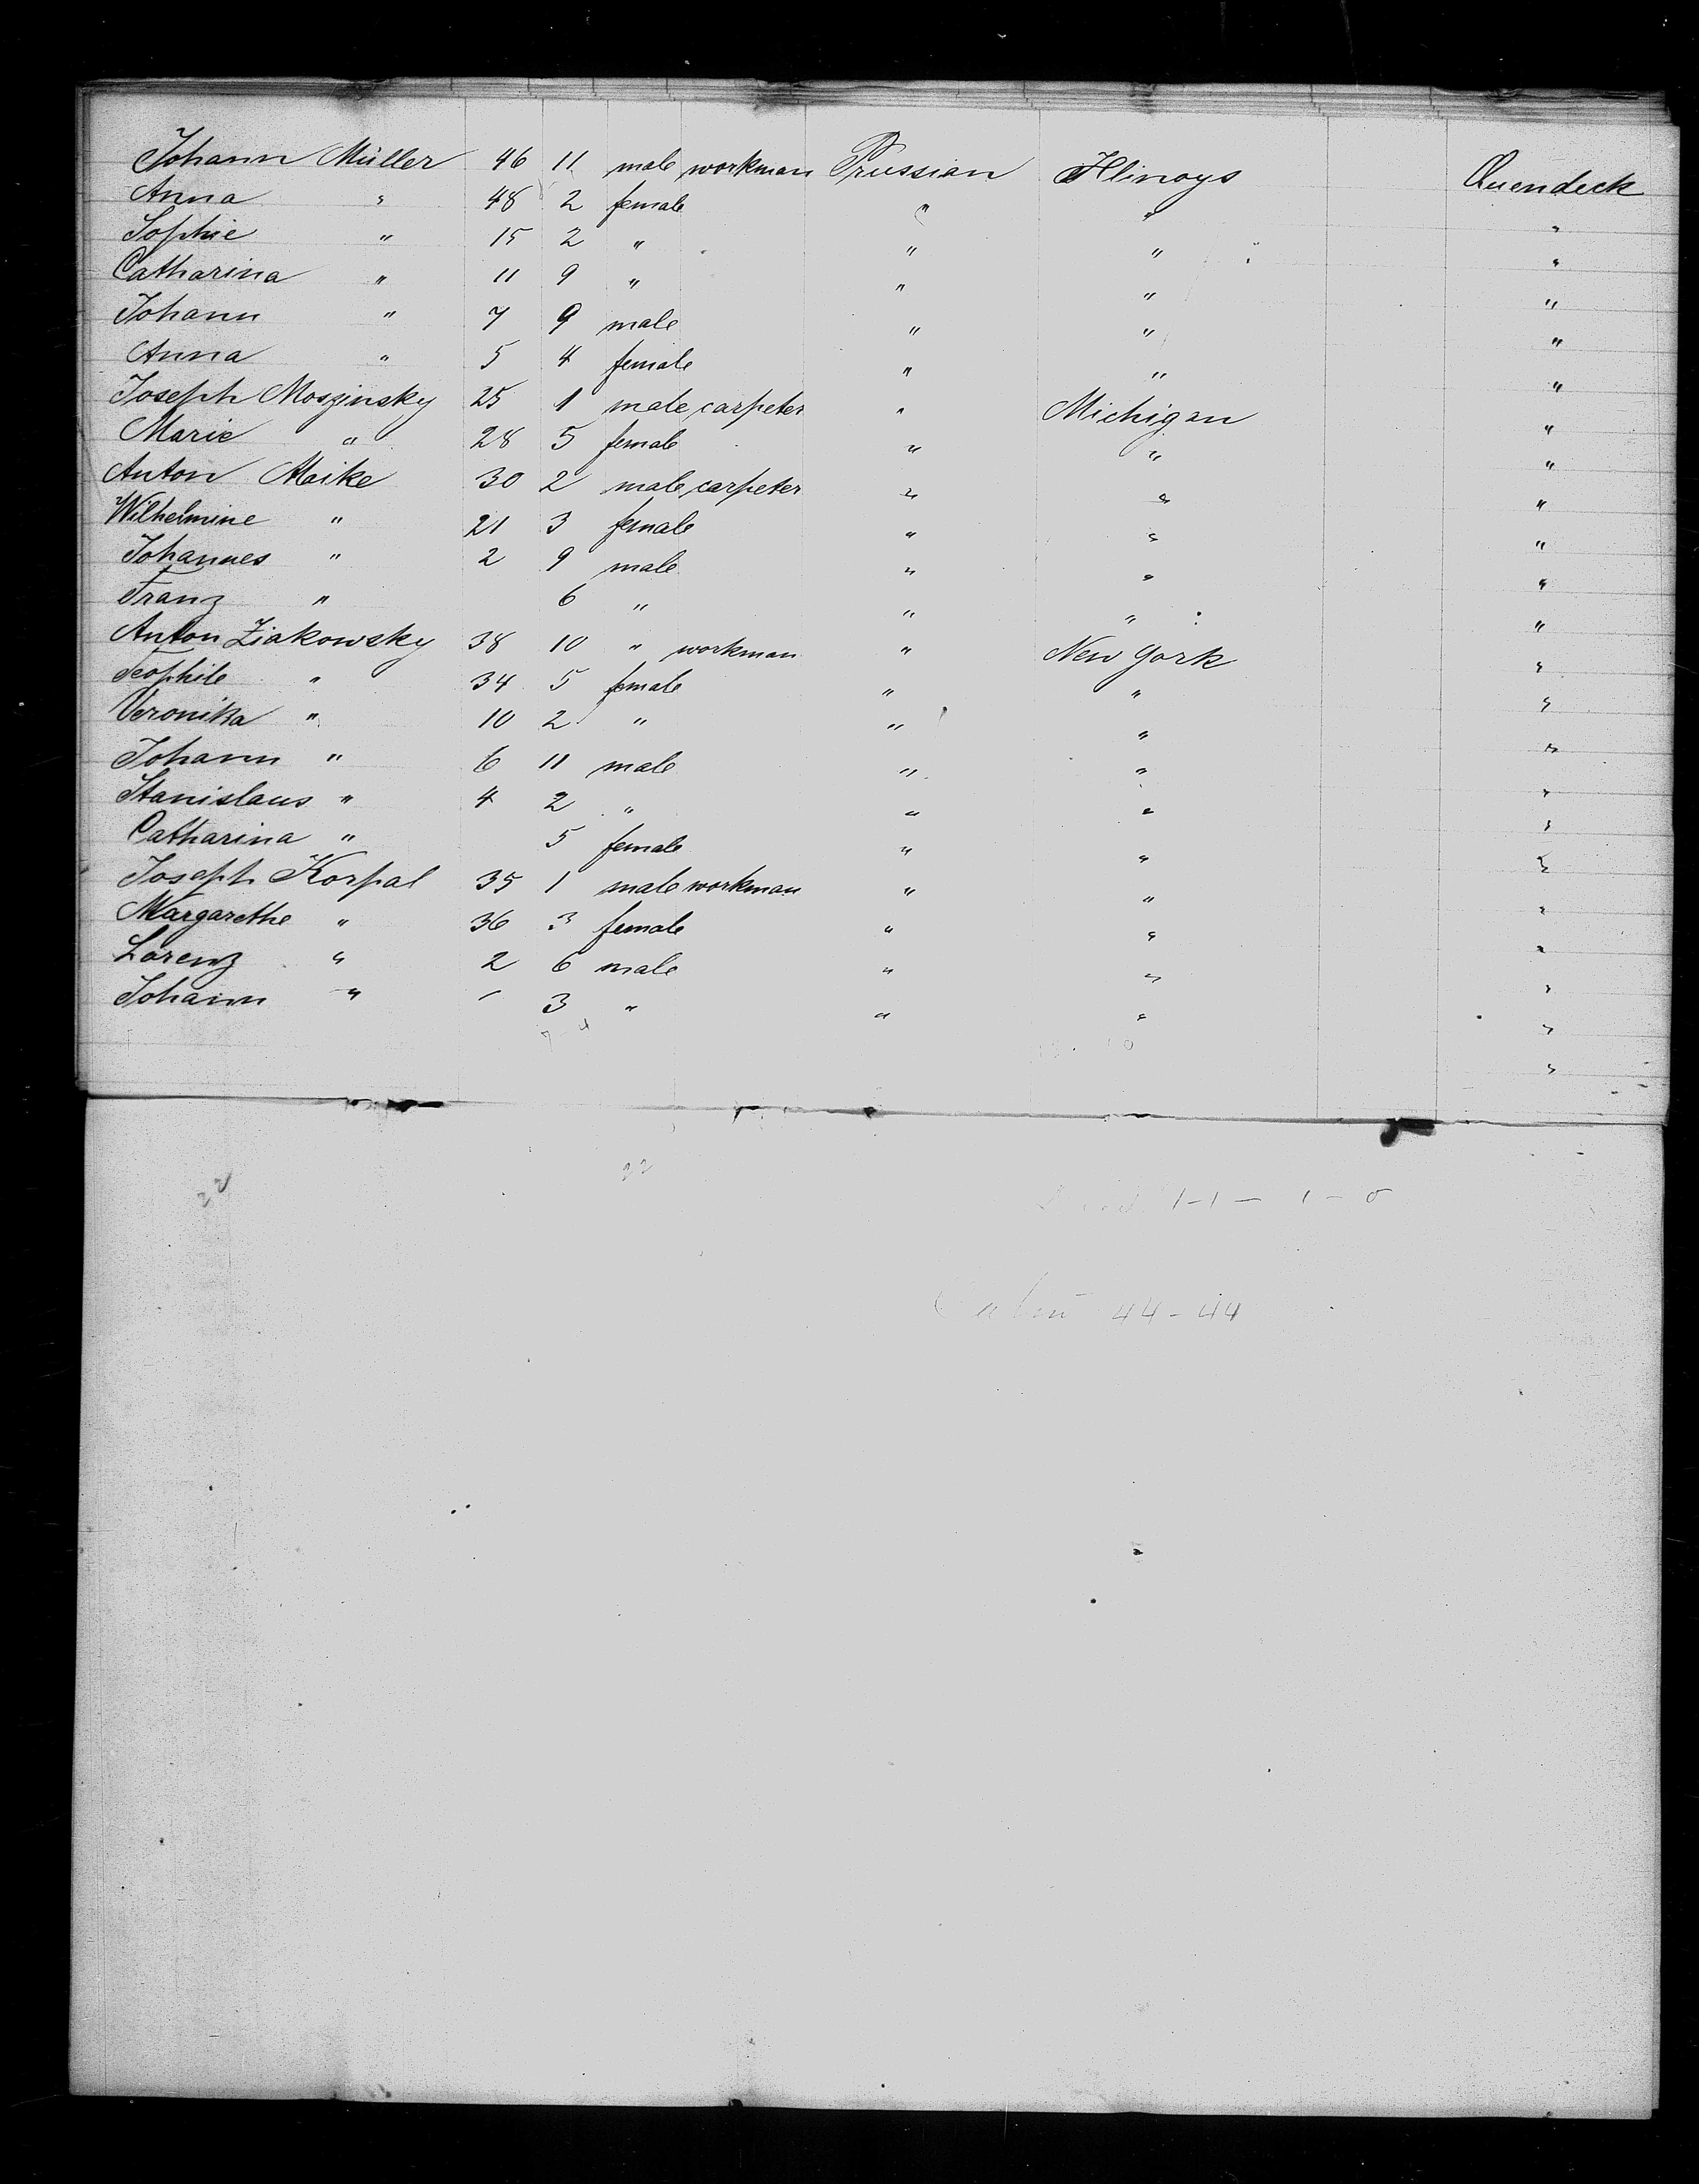 Johann Müller 46 11 male workman Prussian Illinoys Quendeck
Anna " 48 2 female " " "
Sophie " 15 2 " " " "
Catharina " 11 9 " " " "
Johann " 7 9 male " " "
Anna " 5 4 female " " "
Joseph Moszinsky 25 1 male carpeter " Michigan "
Marie " 28 5 female " " "
Anton Maike 30 2 male carpeter " " "
Wilhelmine " 21 3 female " " "
Johannes " 2 9 male " " "
Franz " 6 " " " "
Anton Ziakowsky 38 10 " workman " New York "
Teophile " 34 5 female " " "
Veronika " 10 2 " " " "
Johann " 6 11 male " " "
Stanislaus " 4 2 " " " "
Catharina " 5 female " " "
Joseph Korpal 35 1 male workman " " "
Margarethe " 36 3 female " " "
Lorenz " 2 6 male " " "
Johann " - 3 " " " "
22
22
1-1- 1-0
44-44